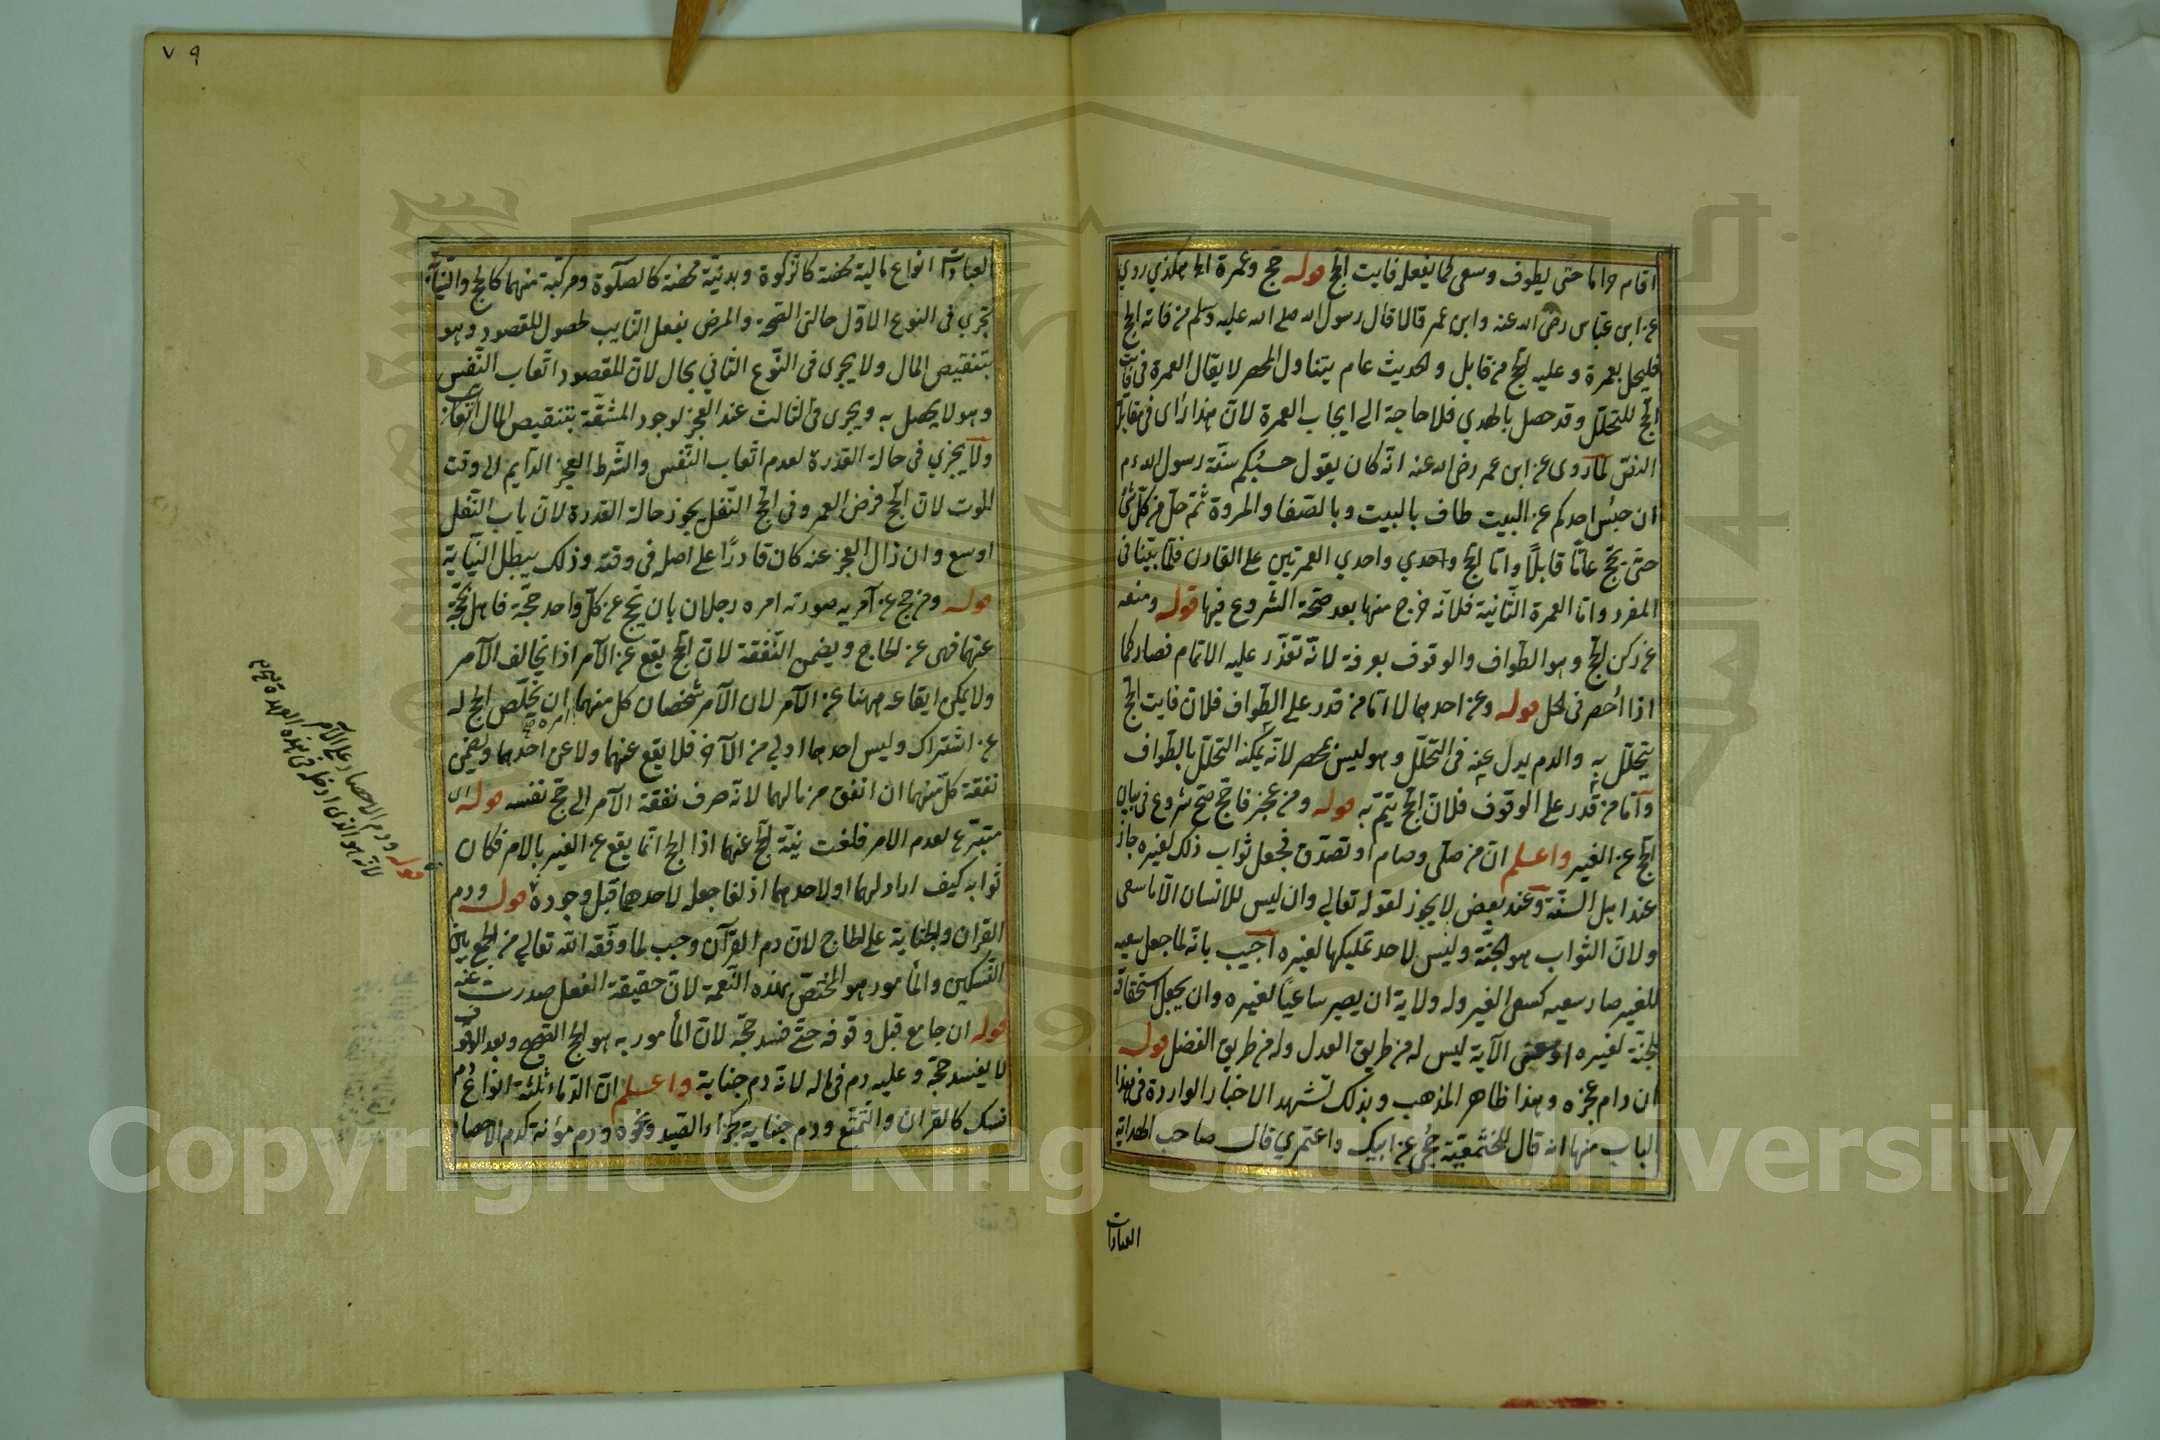 اقام حراما حتى يطوف وسعى كما يفعله فايت الحج قوله حج وعمرة الخ هكذي روي
عن ابن عباس رضي الله عنه وابن عمر قالا قال رسول الله صلى الله عليه وسلم من فاته الحج
فليحل بعمرة وعليه الحج من قابل والحديث عام يتناول المحصر لا يقال العمرة في فايت
الحج للتحلل وقد حصل بالهدي فلا حاجة الى ايجاب العمرة لان هذا رأى في مقابلة
النص لما روى عن ابن عمر رضي الله عنه انه كان يقول حسبكم سنة رسول الله ءم
ان حبس احدكم عن البيت طاف بالبيت وبالصفا والمروة ثم حل من كل شئ
حتى يحج عاما قابلا واما الحج واحدي واحدي العمرتين على القارن فلما بينا في
المفرد واما العمرة الثانية فلانه خرج منها بعد صحة الشروع فيها قوله ومنعه
عن ركن الحج وهو الطواف والوقوف بعرفة لانه تعذر عليه الاتمام فصار كما
اذا احصر في الحل قوله وعن احدهما لا اما من قدر على الطواف فلان فايت الحج
يتحلل به والدم بدل عنه في التحلل وهو ليس بمحصر لانه يمكنه التحلل بالطواف
واما من قدر على الوقوف فلان الحج يتم به قوله ومن عجز فاحج صح شروع في بيان
الحج عن الغير واعلم ان من صلى وصام او تصدق فجعل ثواب ذلك لغيره جاز
عند اهل السنة وعند بعض لا يجوز لقوله تعالى وان ليس للانسان الا ما سعى
ولان الثواب هو الجنة وليس لاحد تمليكها لغيره اجيب بانه لما جعل سعيه
للغير صار سعيه كسعى الغير وله ولاية ان يصير ساعيا لغيره وان يجعل استحقاقه
الجنة لغيره او معنى الآية ليس له من طريق العدل وله من طريق الفضل قوله
ان دام عجزه وهذا ظاهر المذهب وبذلك تشهد الاخبار الواردة في هذا
الباب منها انه قال للخثعمية حجي عن ابيك واعتمري قال صاحب الهداية
العبادات
٧٩
العبادات انواع مالية محضة كالزكوة وبدنية محضة كالصلوة ومركبة منهما كالحج والنيابة
تجري في النوع الاول حالتى الصحة والمرض بفعل النايب لحصول المقصود وهو
بتنقيص المال ولا يجرى في النوع الثاني بحال لان المقصود اتعاب النفس
وهو لا يحصل به ويجرى في الثالث عند العجز لوجود المشقة بتنقيص المال
ولا يجزي في حالة القدرة لعدم اتعاب النفس والشرط العجز الدايم الى وقت
الموت لان الحج فرض العمر وفي الحج النفل يجوز حالة القدرة لان باب النفل
اوسع وان زال العجز عنه كان قادرا على اصله في وقته وذلك يبطل النيابة
قوله ومن حج عن آمريه صورته امره رجلان بان يحج عن كل واحد حجة فاهل بحجة
عنهما فهى عن الحاج ويضمن النفقة لان الحج يقع عن الآمر اذا لم يخالف الآمر
ولا يمكن ايقاعه ههنا عن الآمر لان الآمر شخصان كل منهما امره ان يخلص الحج له
عن اشتراك وليس احدهما اولى من الآخر فلا يقع عنهما ولا عن احدهما ويضمن
نفقة كل منهما ان انفق من مالهما لانه صرف نفقة الآمر الى حج نفسه قوله
متبرع لعدم الامر فلغت نية الحج عنهما اذ الحج انما يقع عن الغير بالامر فكان
ثوابه كيف اراد لهما او لاحدهما اذ لغا جعله لاحدهما قبل وجوده قوله ودم
القران والجناية على الحاج لان دم القرآن وجب لما وفقه الله تعالى من الجمع بين
النسكين والمأمور هو المختص بهذه النعمة لان حقيقة الفعل صدرت عنه
قوله ان جامع قبل وقوفه حتى فسد حجه لان المأمور به هو الحج الصحيح وبعد الوقوف
لا يفسد حجه وعليه دم في ماله لانه دم جناية واعلم ان الدماء ثلثة انواع دم
نسك كالقران والتمتع ودم جناية كجزاء الصيد ونحوه ودم مؤنة كدم الاحصار
قوله ودم الاحصار على الآمر
لانه هو الذى ادخله في هذه العهدة
Copyright © King Saud University